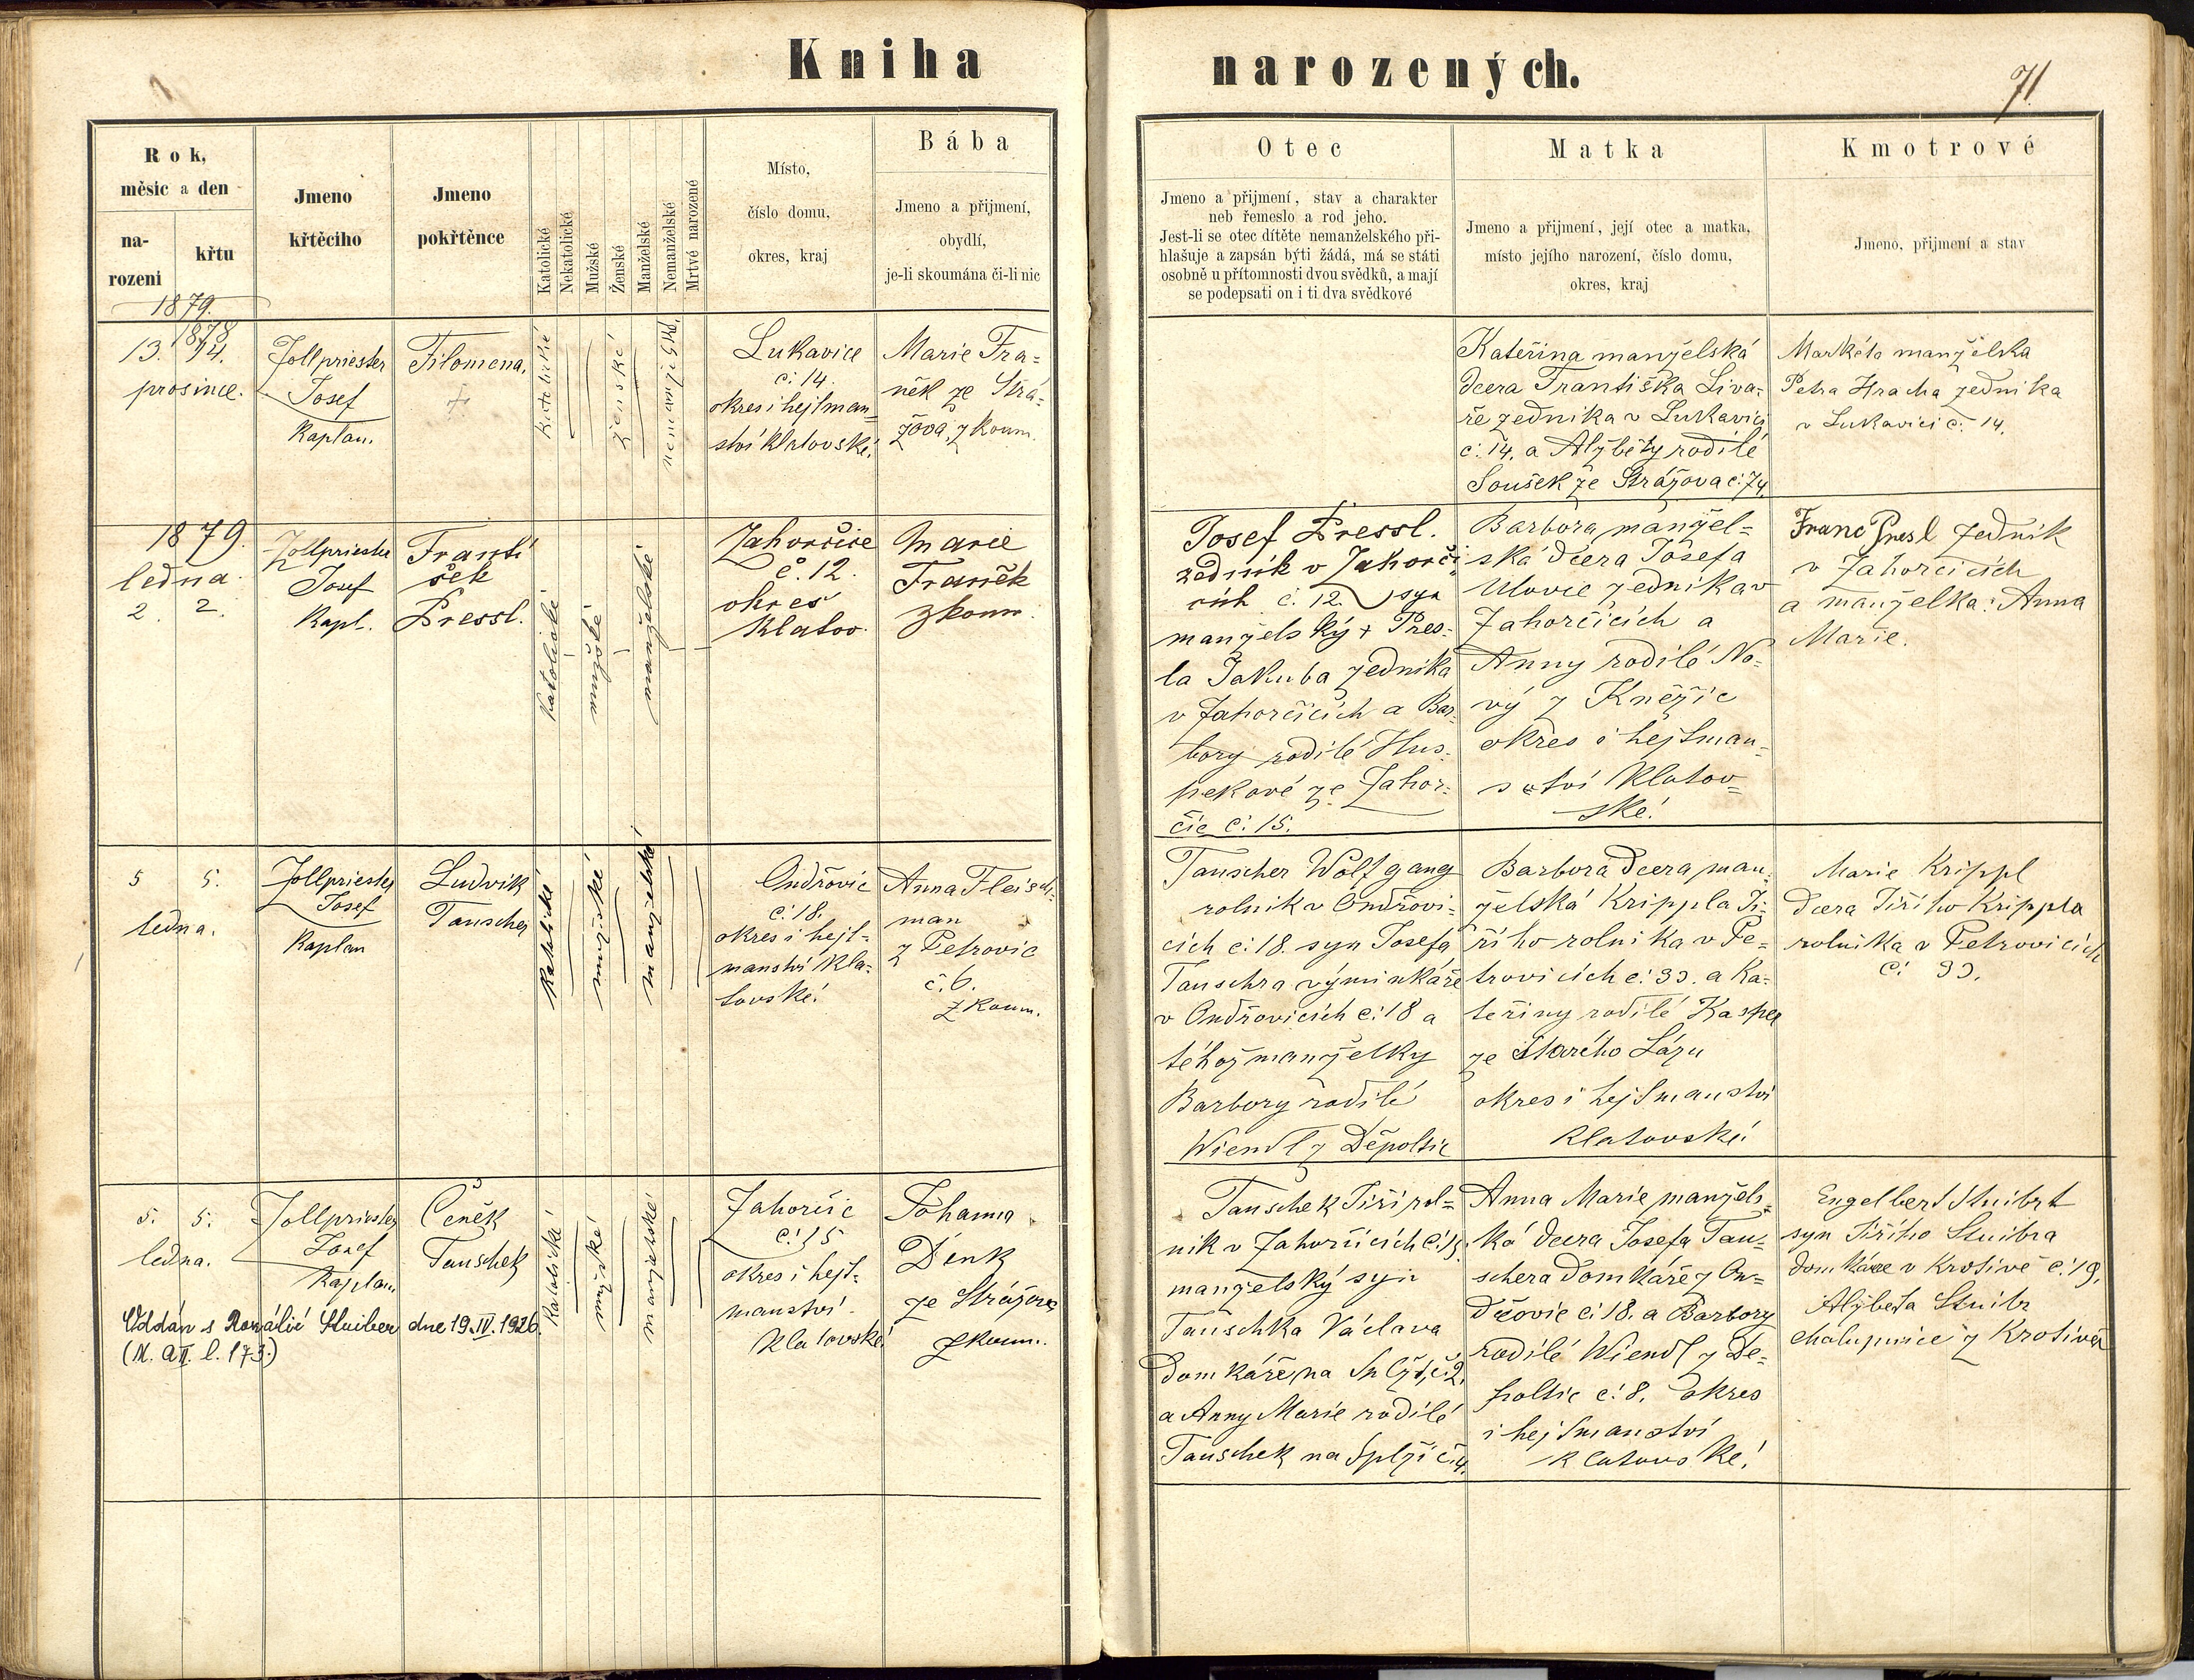 Kniha narozených.
71
Rok,
měsíc a den
na-
rozeni
křtu
Jmeno
křtěcího
Jmeno
pokřtěnce
Katolické
Nekatolické
Mužské
Ženské
Manželské
Nemanželské
Mrtvé narozené
Místo,
číslo domu,
okres, kraj
Bába
Jmeno a přijmení,
obydlí,
je-li skoumána či-li nic
Otec
Jmeno a přijmení, stav a charakter
neb řemeslo a rod jeho.
Jest-li se otec dítěte nemanželského při-
hlašuje a zapsán býti žádá, má se státi
osobně u přítomnosti dvou svědků, a mají
se podepsati on i ti dva svědkové
Matka
Jmeno a přijmení, její otec a matka,
místo jejího narození, číslo domu,
okres, kraj
Kmotrové
Jmeno, přijmení a stav
1879.
1878
13. 14.
prosince.
Zollpriester
Josef
Kaplan.
Filomena.
+
Katolické
ženské
nemanželské
Lukavice
č: 14.
okres i hejtman=
ství klatovské.
Marie Fra=
něk ze Strá=
žova, zkoum.
Kateřina manželská
dcera Františka Liva=
ře zedníka v Lukavici
č: 14. a Alžběty rodilé
Soušek ze Strážova č: 74.
Markéta manželka
Petra Hracha zedníka
v Lukavici č: 14.
1879.
ledna.
2. 2.
Zollpriester
Josef
Kapl.
Franti
šek
Pressl.
Katolické
mužské
manželské
Zahorčice
č. 12.
okres
Klatov.
Marie
Franěk
zkoum.
Josef Pressl.
zedník v Zahorči
cích č. 12. syn
manželský + Pres=
la Jakuba zedníka
v Zahorčicích a Bar=
bory rodilé Hus=
pekové ze Zahor=
čic č: 15.
Barbora manžel=
ská dcera Josefa
Ulovce zedníka v
Zahorčicích a
Anny rodilé No=
vý z Kněžic
okres i hejtman=
ství Klatov=
ské.
Franc Presl zedník
v Zahorčicích
a manželka: Anna
Marie.
5 5.
ledna.
Zollpriester
Josef
Kaplan
Ludvík
Tauscher
Katolické
mužské
manželské
Ondřovic
č: 18.
okres i hejt=
manství Kla=
tovské.
Anna Fleisch=
man
z Petrovic
č. 6.
zkoum.
Tauscher Wolfgang
rolník v Ondřovi=
cích č: 18. syn Josefa
Tauschra výminkáře
v Ondřovicích č: 18 a
téhož manželky
Barbory rodilé
Wiendl z Děpoltic
Barbora dcera man=
želská Krippla Ji=
řího rolníka v Pe=
trovicích č: 33. a Ka=
teřiny rodilé Kasper
ze Starého Lázu
okres i hejtmanství
Klatovské.
Marie Krippl
dcera Jiřího Krippla
rolníka v Petrovicích
č: 33.
5. 5.
ledna.
Zollpriester
Josef
Kaplan
Čeněk
Tauschek
Katolické
mužské
manželské
Zahorčic
č: 15
okres i hejt=
manství
Klatovské.
Johanna
Denk
ze Strážova
zkoum.
Oddán s Rozálií Stuiber dne 19. IV. 1926.
(M. a II. l. 173.)
Tauschek Jiří rol=
ník v Zahorčicích č: 15.
manželský syn
Tauschka Václava
domkáře na Splži, č: 2.
a Anny Marie rodilé
Tauschek na Splži č: 4.
Anna Marie manžels=
ká dcera Josefa Tau=
schera domkáře z On=
dřovic č: 18. a Barbory
rodilé Wiendl z De=
poltic č: 8. okres
i hejtmanství
klatovské.
Engelbert Stuibr
syn Jiřího Stuibra
domkáře v Krotivě č: 19.
Alžběta Stuibr
chalupnice z Krotiva